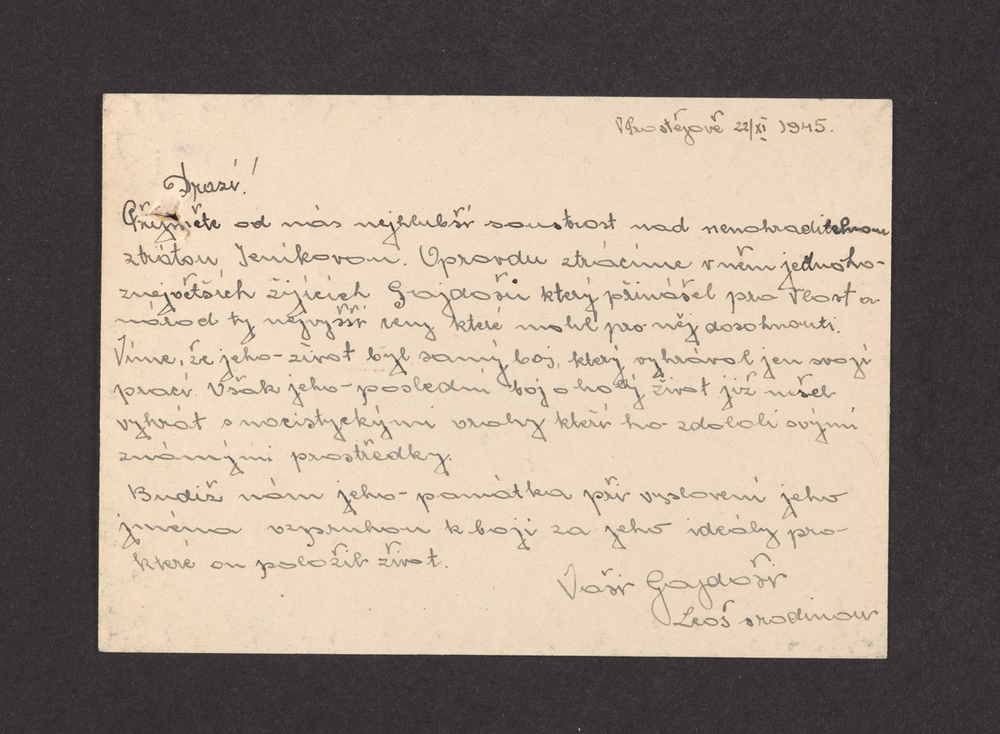 V Prostějově 22/XI 1945.
Drazí!
Přijměte od nás nejhlubší soustrost nad nenahraditelnou
ztrátou Jeníkovou. Opravdu ztrácíme v něm jednoho-
z největších žijících Gajdošů který přinášel pro Vlast a-
národ ty nejvyšší ceny které mohl pro něj dosáhnouti.
Víme, že jeho-život byl samý boj, který vyhrával jen svojí
prací. Však jeho-poslední boj o holý život již nešel
vyhrát s nacistyckými vrahy kteří ho-zdolali svými
známými prostředky.
Budiž nám jeho-památka při vyslovení jeho
jména vzpruhou k boji za jeho ideály pro-
které on položil život.
Vaši Gajdoši
Leoš s rodinou